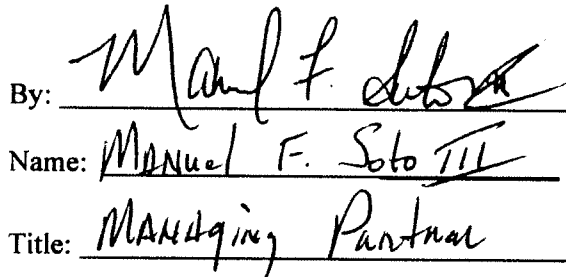 By: Manuel F. Soto III
Name: Manuel F. Soto III
Title: Managing Partner